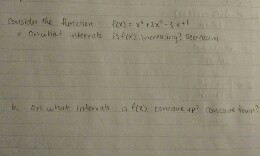 Consider the function f(x) = x⁴ + 2x³ - 3x² + 1
On what intervals is f(x) increasing? decreasing
b. on what intervals is f(x) concave up? concave down?